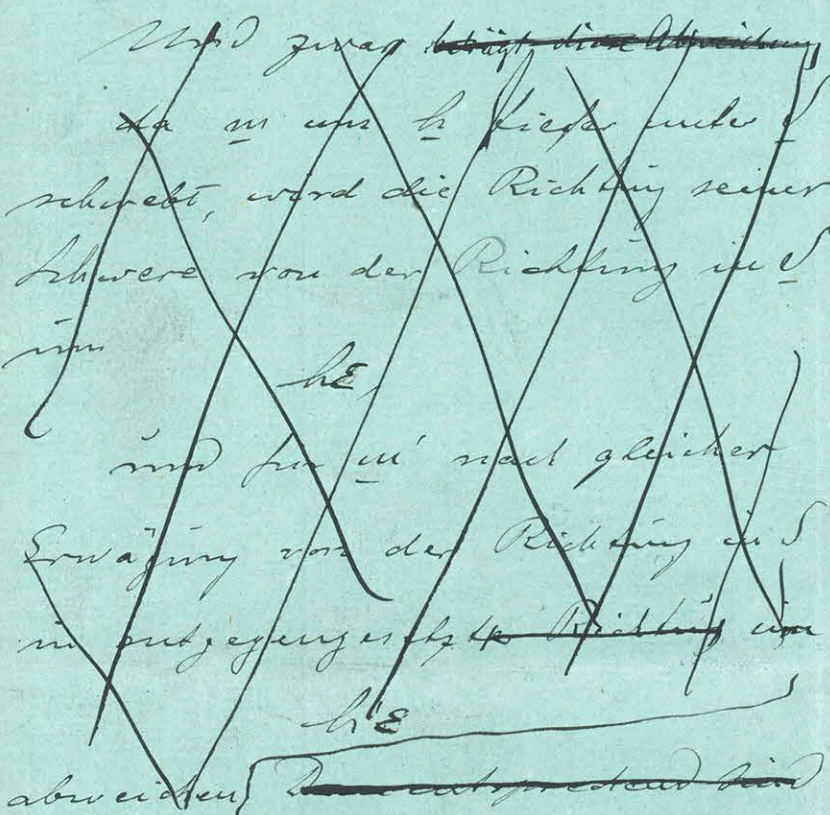 Und zwar beträgt diese Abweichung
da m um h tiefer unter S
schwebt, wird die Richtung seiner
Schwere von der Richtung in S
um
hε,
und für m' nach gleicher
Erwägung von der Richtung in S
in entgegengesetzter Richtung um
h'ε
abweichen. Dementsprechend sind